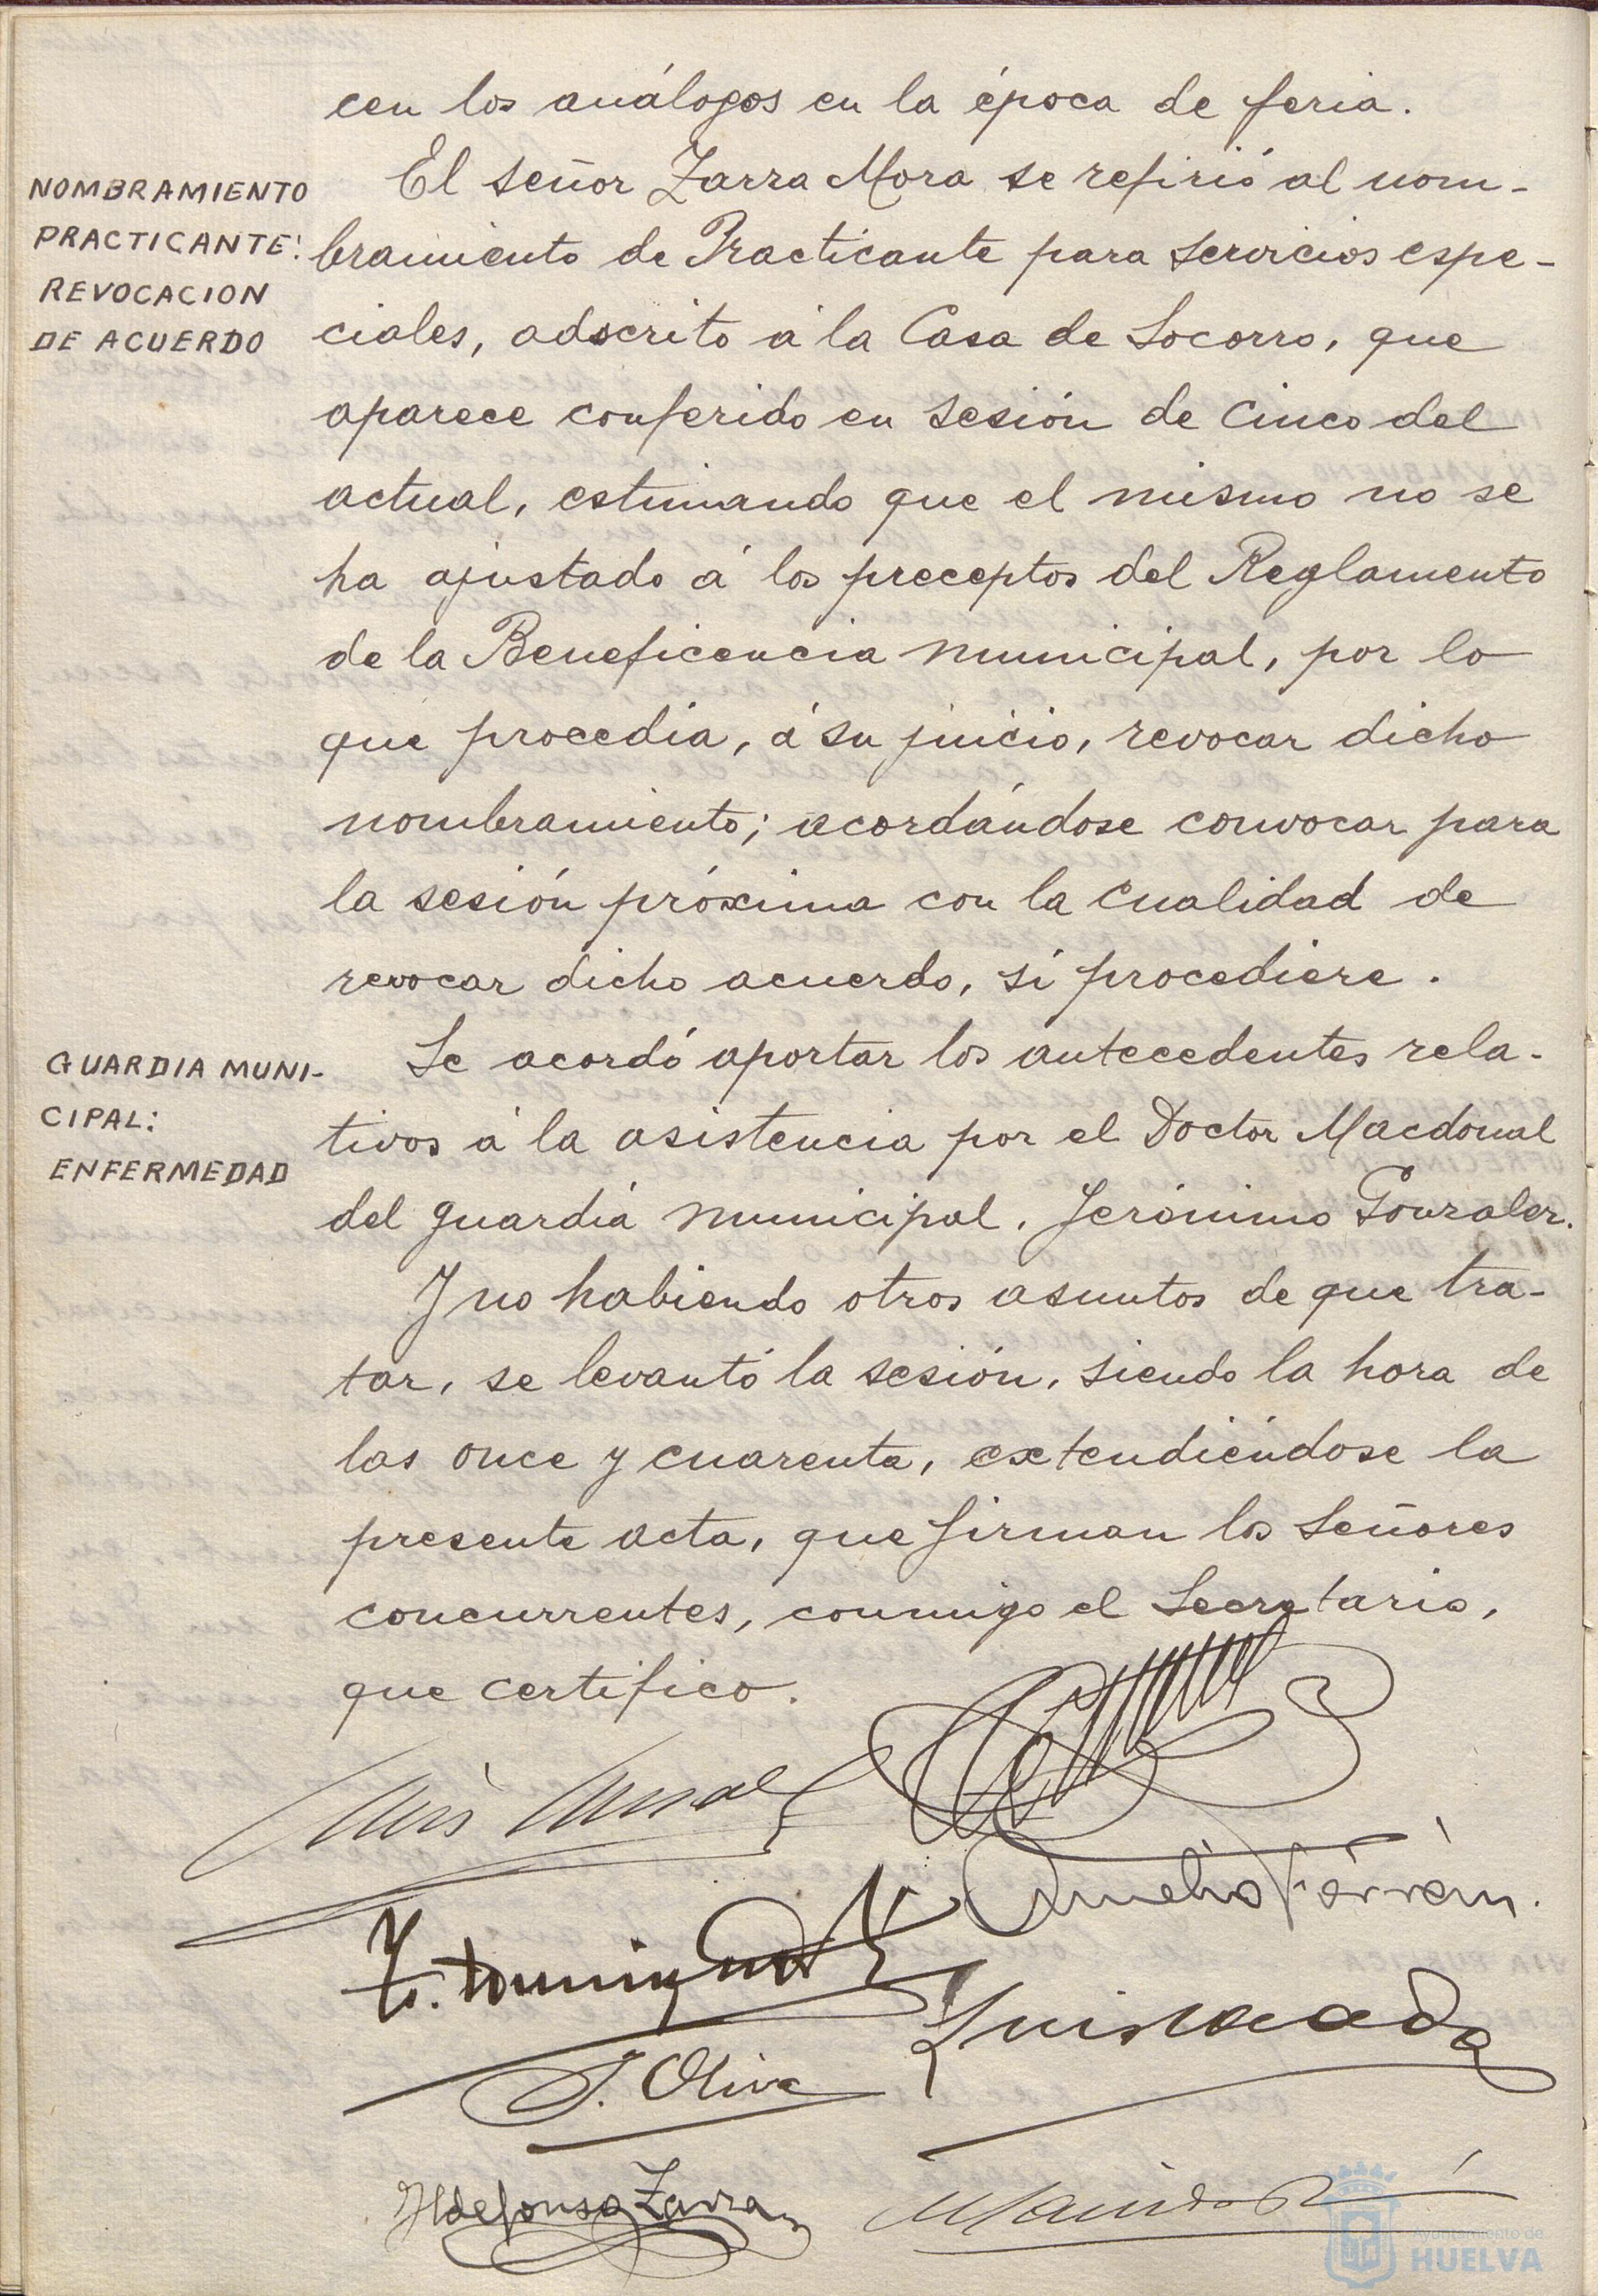 cen los análogos en la época de feria.
NOMBRAMIENTO
PRACTICANTE:
REVOCACION
DE ACUERDO
El señor Zarza Mora se refirió al nom-
bramiento de Practicante para servicios espe-
ciales, adscrito á la Casa de Socorro, que
aparece conferido en sesión de cinco del
actual, estimando que el mismo no se
ha ajustado á los preceptos del Reglamento
de la Beneficencia municipal, por lo
que procedia, á su juicio, revocar dicho
nombramiento; acordándose convocar para
la sesión próxima con la cualidad de
revocar dicho acuerdo, si procediere.
GUARDIA MUNI-
CIPAL:
ENFERMEDAD
Se acordó aportar los antecedentes rela-
tivos á la asistencia por el Doctor Macdonal
del guardia municipal, Jerónimo Gonzalez.
Y no habiendo otros asuntos de que tra-
tar, se levantó la sesión, siendo la hora de
las once y cuarenta, extendiéndose la
presente acta, que firman los Señores
concurrentes, conmigo el Secretario,
que certifico.
J. Oliva
Ildefonso Zarza
Ayuntamiento de
HUELVA